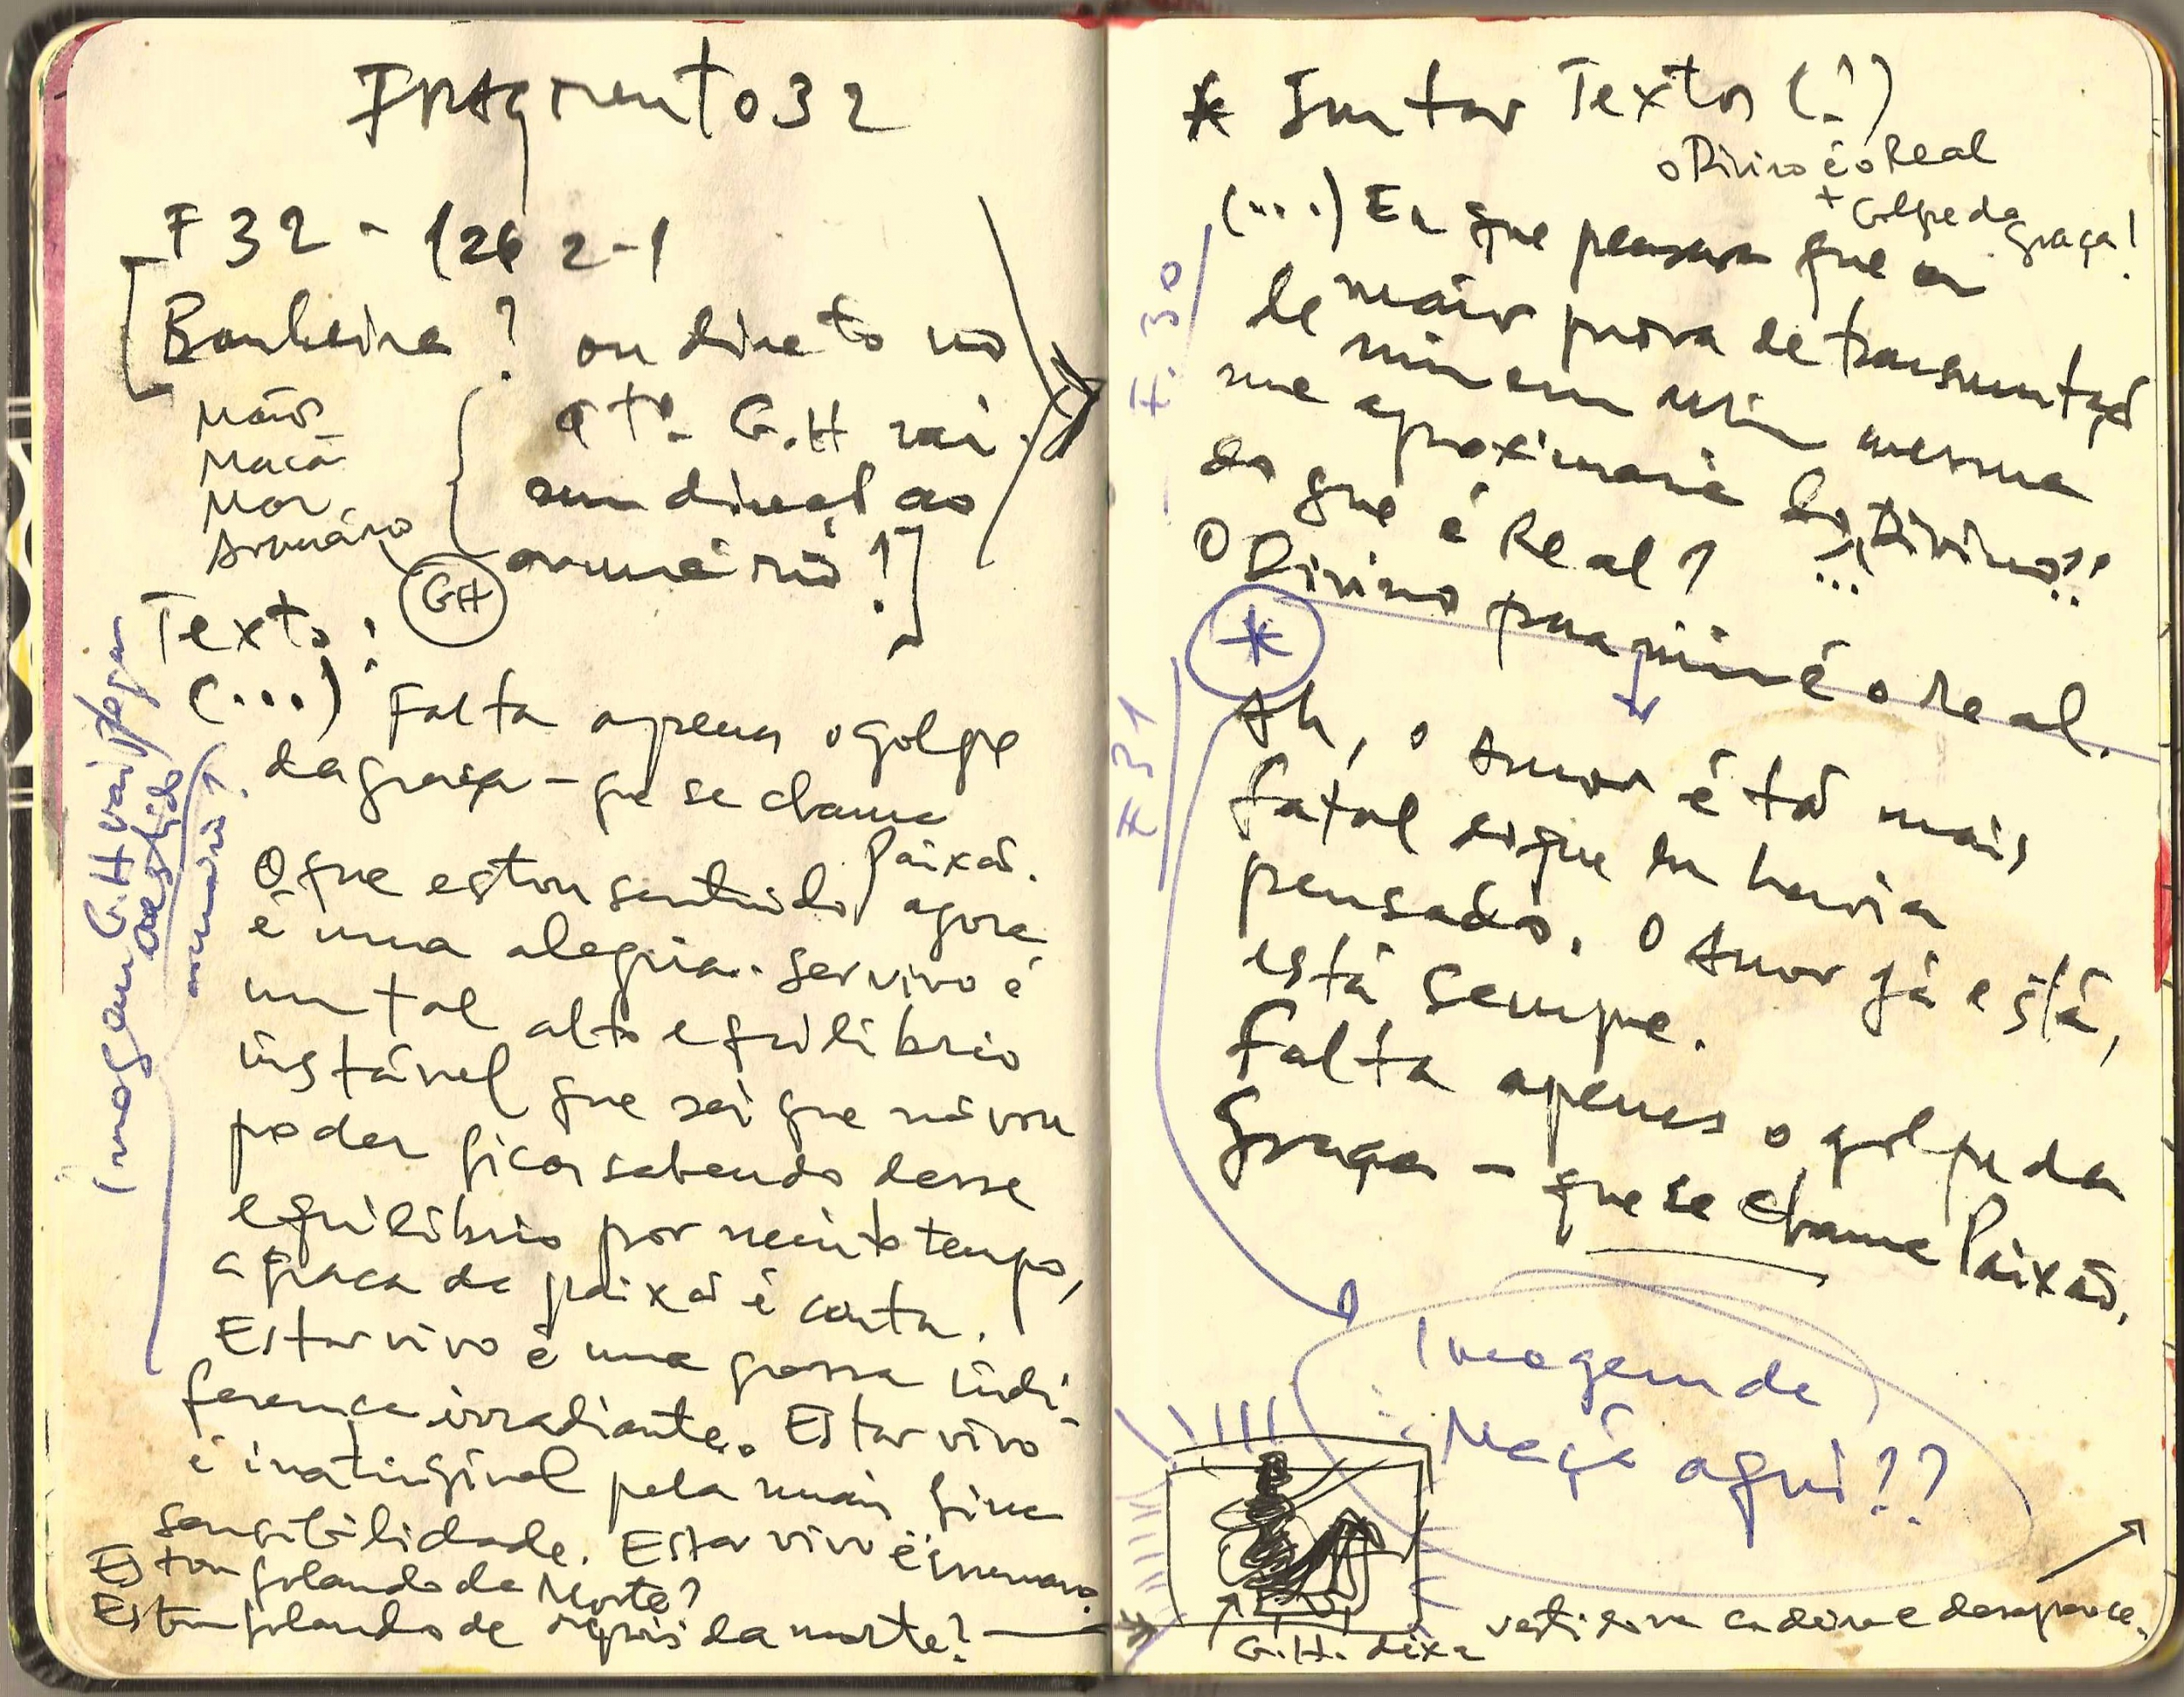 Fragmento 32
F 32 - 126 2-1
Banheira? ou direto no
qto. G.H vai
num direcd ao
armário!]
Mão
Maçã
Mar
Armário
GH
Texto:
(...) Falta apenas o golpe
da graça - que se chama
Paixão.
O que estou sentindo agora
é uma alegria. Ser vivo é
um tal alto equilíbrio
instável que sei que não vou
poder ficar sabendo desse
equilíbrio por muito tempo,
a graça da paixão é curta.
Estar vivo é uma grossa indi-
ferença irradiante. Estar vivo
é inatingível pela mais fina
sensibilidade. Estar vivo é inumano.
Estou falando da Morte?
Estou falando de depois da morte?
Imagem G.H vai pegar
o vestido
armário?
* Juntar Textos (!)
o Divino é o Real
+ Golpe da graça!
F. 30
(...) Eu que pensara que a
maior prova de transmutação
de mim em mim mesma
me aproximaria do Divino??
do que é Real?
O Divino pra mim é o real.
*
F 31
Ah, o Amor é tão mais
fatal do que eu havia
pensado. O Amor já está,
está sempre.
Falta apenas o golpe da
Graça - que se chama Paixão.
Imagem da
Maçã aqui??
G.H. deixa vestido na cadeira e desaparece.